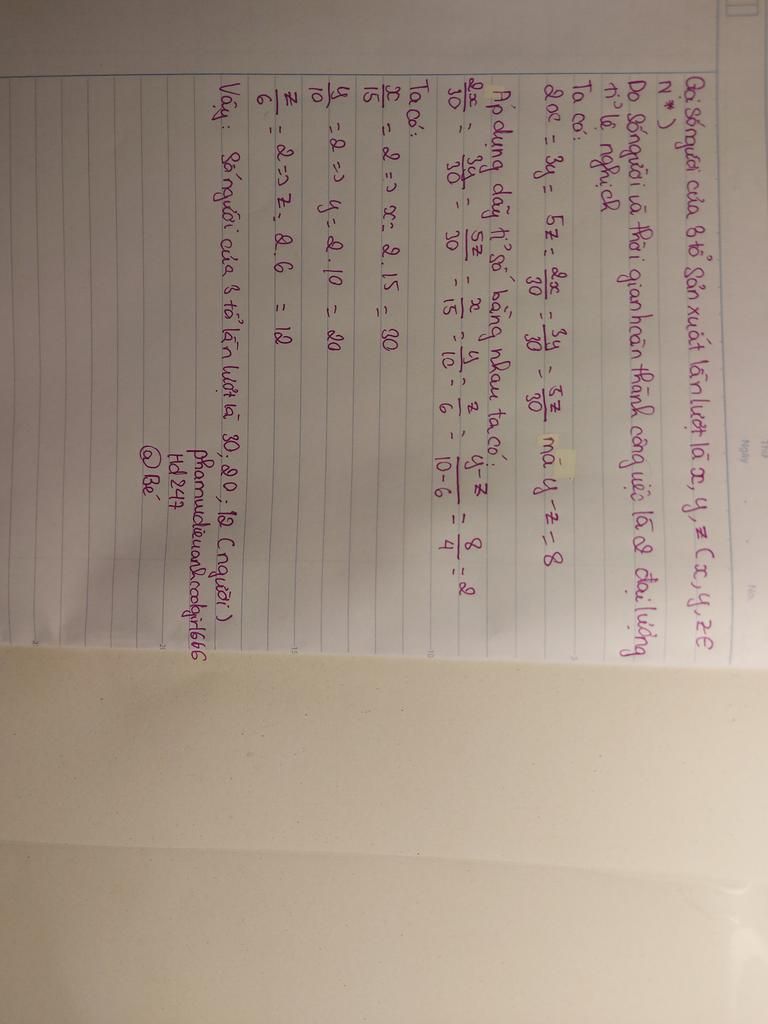 Thứ
Ngày
No.
Gọi số người của 3 tổ sản xuất lần lượt là x, y, z (x, y, z ∈
N*)
Do số người và thời gian hoàn thành công việc là 2 đại lượng
tỉ lệ nghịch
Ta có:
2x = 3y = 5z = 2x/30 = 3y/30 = 5z/30 mà y - z = 8
Áp dụng dãy tỉ số bằng nhau ta có:
2x/30 = 3y/30 = 5z/30 = x/15 = y/10 = z/6 = y-z/10-6 = 8/4 = 2
Ta có:
x/15 = 2 => x = 2.15 = 30
y/10 = 2 => y = 2.10 = 20
z/6 = 2 => z = 2.6 = 12
Vậy: Số người của 3 tổ lần lượt là 30; 20; 12 (người)
phamvudieuanhcoolgirl666
Hd247
@Bé